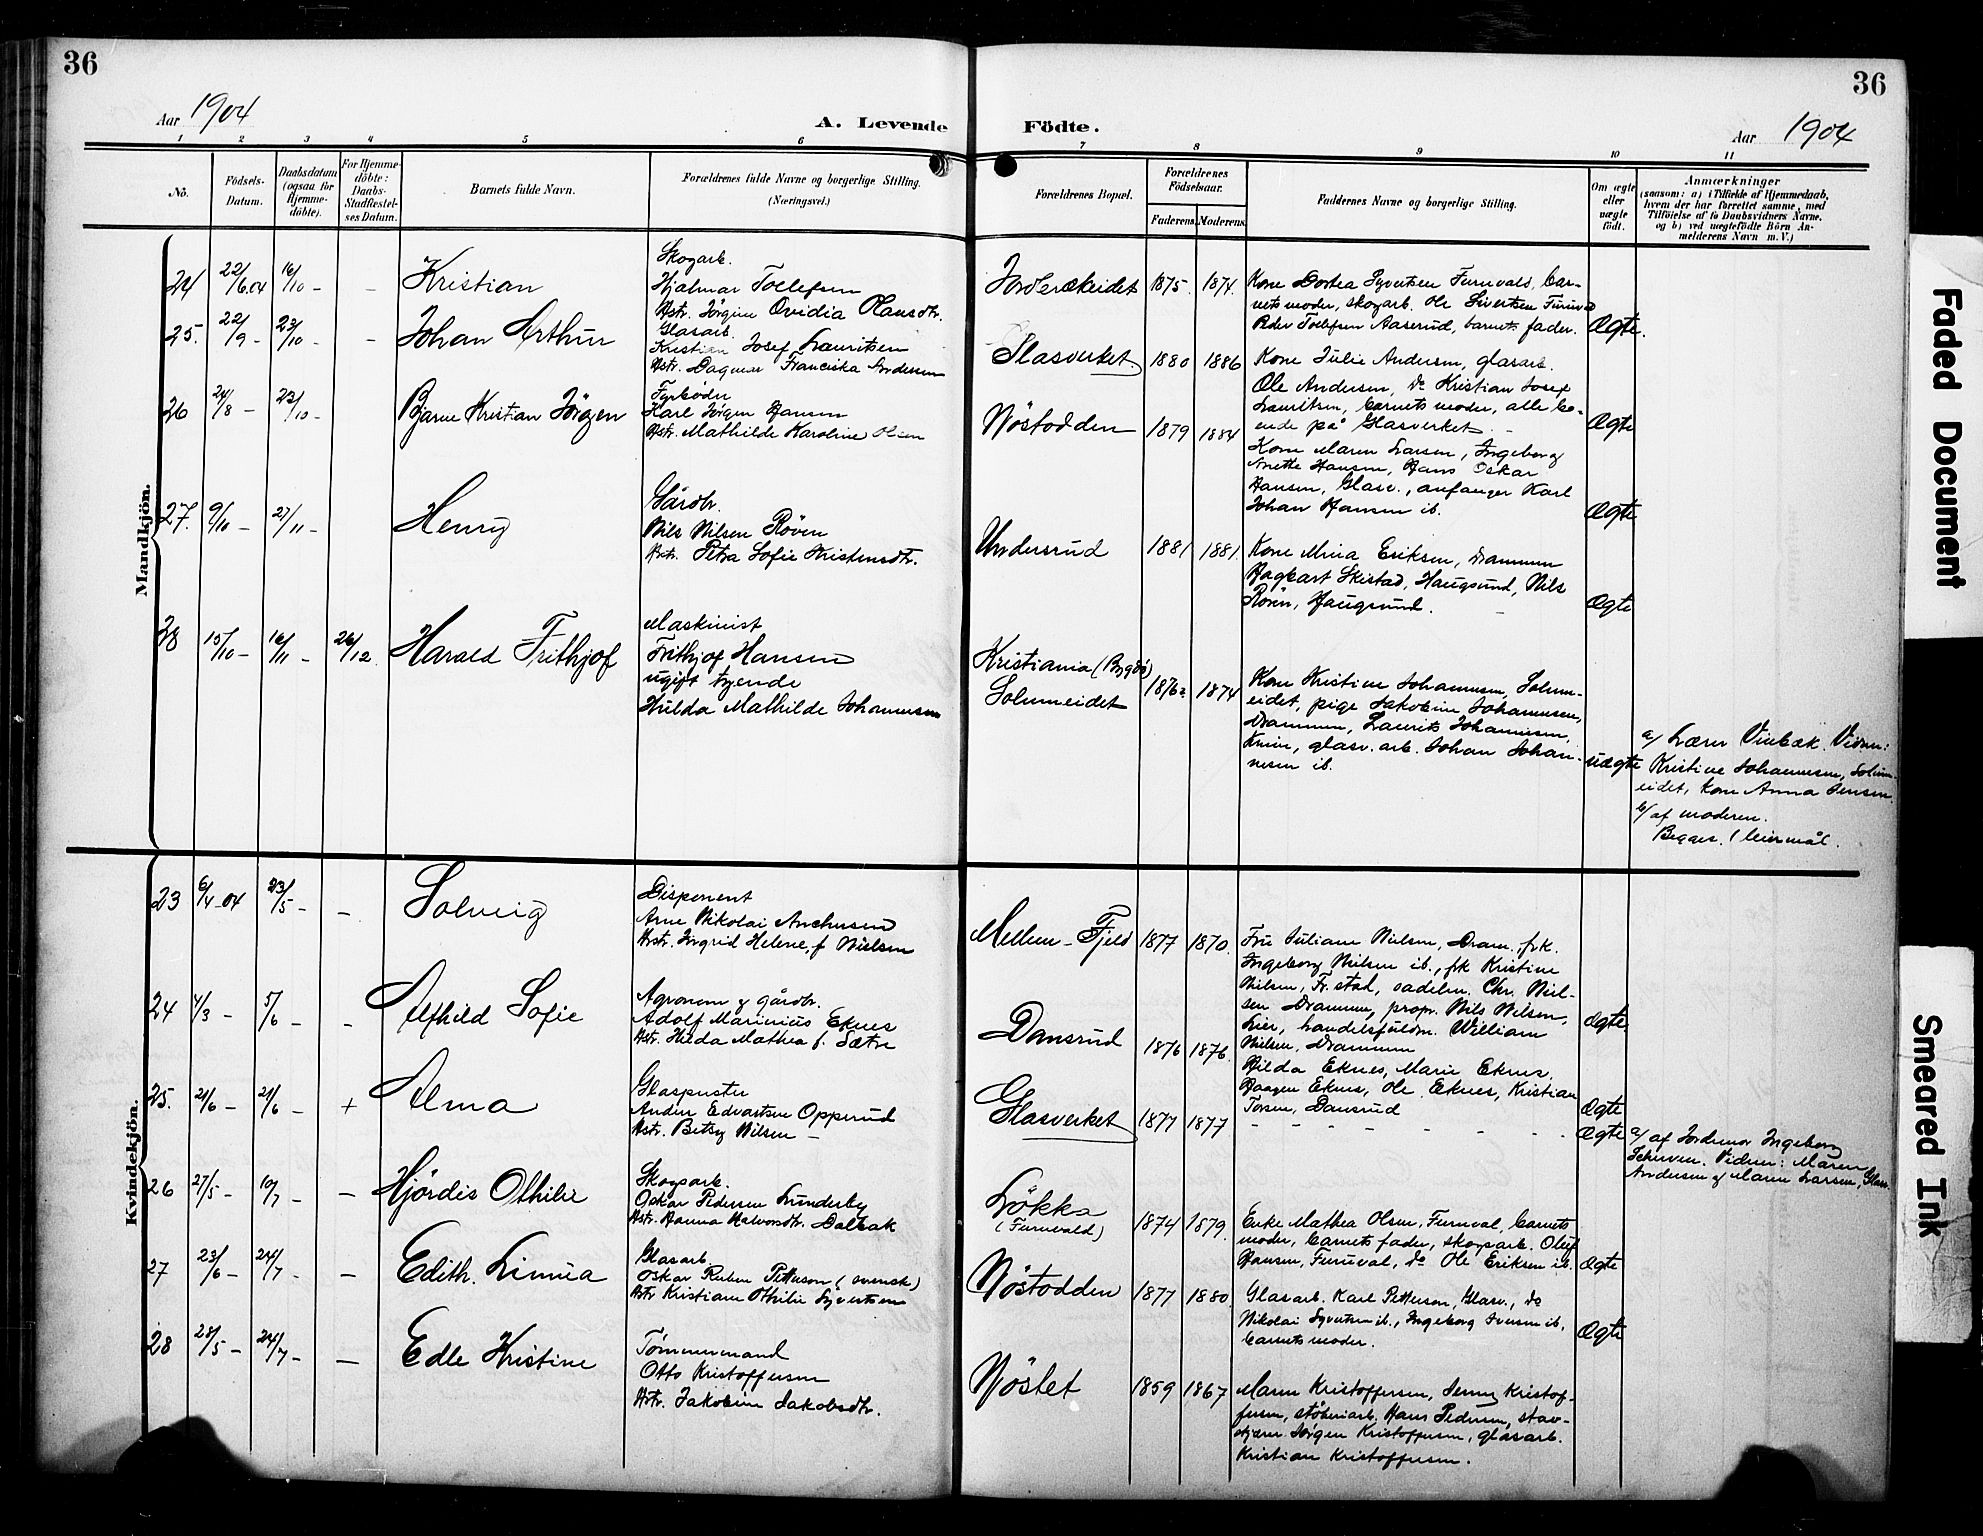 36
36
Aar 1904
A. Levende
Födte.
Aar 1904
1 2 3 4 5 6
7 8 9 10 11
No.
Födsels-
Datum.
Daabsdatum
(ogsaa for
Hjemme-
döbte).
For Hjemme-
döbte:
Daabs-
Stadfæstel-
ses Datum.
Barnets fulde Navn.
Forældrenes fulde Navne og borgerlige Stilling.
(Næringsvei.)
Forældrenes Bopæl.
Forældrenes
Födselsaar.
Faderens. Moderens.
Faddernes Navne og borgerlige Stilling.
Om ægte
eller
uægte
födt.
Anmærkninger
(saasom: a) i Tilfælde af Hjemmedaab,
hvem der har forrettet samme, med
Tilföielse af to Daabsvidners Navne,
og b) ved uægtefödte Börn An-
melderens Navn m. V.)
Mandkjön.
24 22/6.04 16/10 - - Kristian
Skogarb.
Hjalmar Tollefsen
Hstr. Jørgine Ovidia Olausdtr.
1875. 1874.
Kone Dortea Syvertsen Furuvald, bar-
nets moder, skogarb. Ole Sivertsen Furuvd
Peder Tollefsen Aaserud, barnets fader. Ægte.
25. 22/9 - 23/10 - - Johan Arthur
Glasarb.
Kristian Josef Lauritsen
Hstr. Dagmar Franciska Andersen
Glasverket. 1880 1886
Kone Julie Andersen, glasarb.
Ole Andersen, do Kristian Josef
Lauritsen, barnets moder, alle bo-
ende på Glasverket. - Ægte
26 24/8 - 23/10 - Bjarne Kristian Jörgen
Fyrbøder
Karl Jørgen Hansen
Hstr. Mathilde Karoline Olsen
Nöstodden 1879 1884
Kone Maren Larsen, Ingeborg
Anette Hansen, Hans Oskar
Hansen, Glasv., anfanger Karl
Johan Hansen ib. Ægte
27. 9/10 - 27/11 - Henry
Gårdbr.
Nils Nilsen Røven
Hstr. Petra Sofie Kristensdtr.
Undersrud 1881 1881.
Kone Mina Eriksen, Drammen
Hagbart Skistad, Haugsund, Nils
Rövén, Haugsund. - Ægte
28 15/10 - 16/11 - 26/12. Harald Frithjof
Maskinist
Frithjof Hansen
ugift tyende
Hulda Mathilde Johannesen
Kristiania (Bygdö)
Solumeidet 1876 1874
Kone Kristine Johannesen, Solum-
eidet, pige Jakobine Johannesen,
Drammen, Laurits Johannesen,
glasv. arb. Johan Johan-
nesen ib. uægte
a/ Lærer Vinbæk. Vidner:
Kristine Johannesen, Solum-
eidet, kone Anna Jensen.
b/ af moderen.
Begges 1 leiermål.
Kvindekjön.
23 6/4 - 04 23/5 - - Solveig
Disponent
Arne Nikolai Anchersen
Hstr. Ingrid Helene f. Nielsen
Mellem-Fjeld 1877 1870.
Fru Juliane Nielsen, Dram., frk.
Ingeborg Nielsen ib., frk Kristine
Nielsen, Fr.stad, sadelm. Chr. Niel-
sen Drammen, propr. Nils Nilsen,
Lier, handelsfuldm. William
Nielsen, Drammen
Ægte
24 4/3 - 5/6 - - Alfhild Sofie
Agronom og gårdbr.
Adolf Marinius Eknes
Hstr. Hilda Mathea f. Sætre
Dansrud 1876 1876.
Hilda Eknes, Marie Eknes.
Haagen Eknes, Ole Eknes, Kristian
Torsen, Dansrud Ægte
25. 21/6 - 21/6 - + Alma
Glaspuster
Anders Edvartsen Opperud
Hstr. Betsy Nilsen -
Glasverket 1877 1877
- - - - - - - Ægte
a/ af Jordemor Ingeborg
Vidner: Maren
Andersen og Maren Larsen, Glasv.
26 27/5 - 10/7 - - Hjördis Othilie
Skogsarb.
Oskar Pedersen Lunderby
Hstr. Hanna Halvorsdtr. Dalbak
Løkka
(Furuvald) 1874 1879.
Enke Mathea Olsen, Furuval, barnets
moder, barnets fader, skogsarb. Oluf
Hansen, Furuval, do Ole Eriksen ib. Ægte
27 23/6 - 24/7 - - Edith Linnea
Glasarb.
Oskar Ruben Petterson (svenske)
Hstr Kristiane Othilie Syvertsen
Nöstodden 1877 1880.
Glasarb. Karl Petterson, Glasv., do
Nikolai Syvertsen ib., Ingeborg Iversen ib.
barnets moder. Ægte
28 28/5 - 24/7 - - Edle Kristine
Tømmermand
Otto Kristoffersen
Hstr. Jakobine Jakobsdtr.
Nöstet 1859 1867
Maren Kristoffersen, Jenny Kristof-
fersen, støberiarb. Hans Pedersen, stav-
skjærer Jörgen Kristoffersen, glasarb.
Kristian Kristoffersen.
Faded Document
Smeared Ink